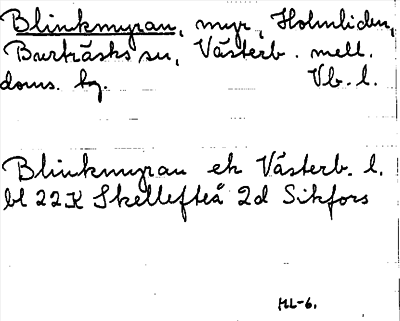 Blinkmyran, myr, Holmliden,
Burträsks sn, Västerb. mell.
doms. tg. Vb. l.
Blinkmyran ek Västerb. l.
bl 22K Skellefteå 2d Sikfors
ML-6.